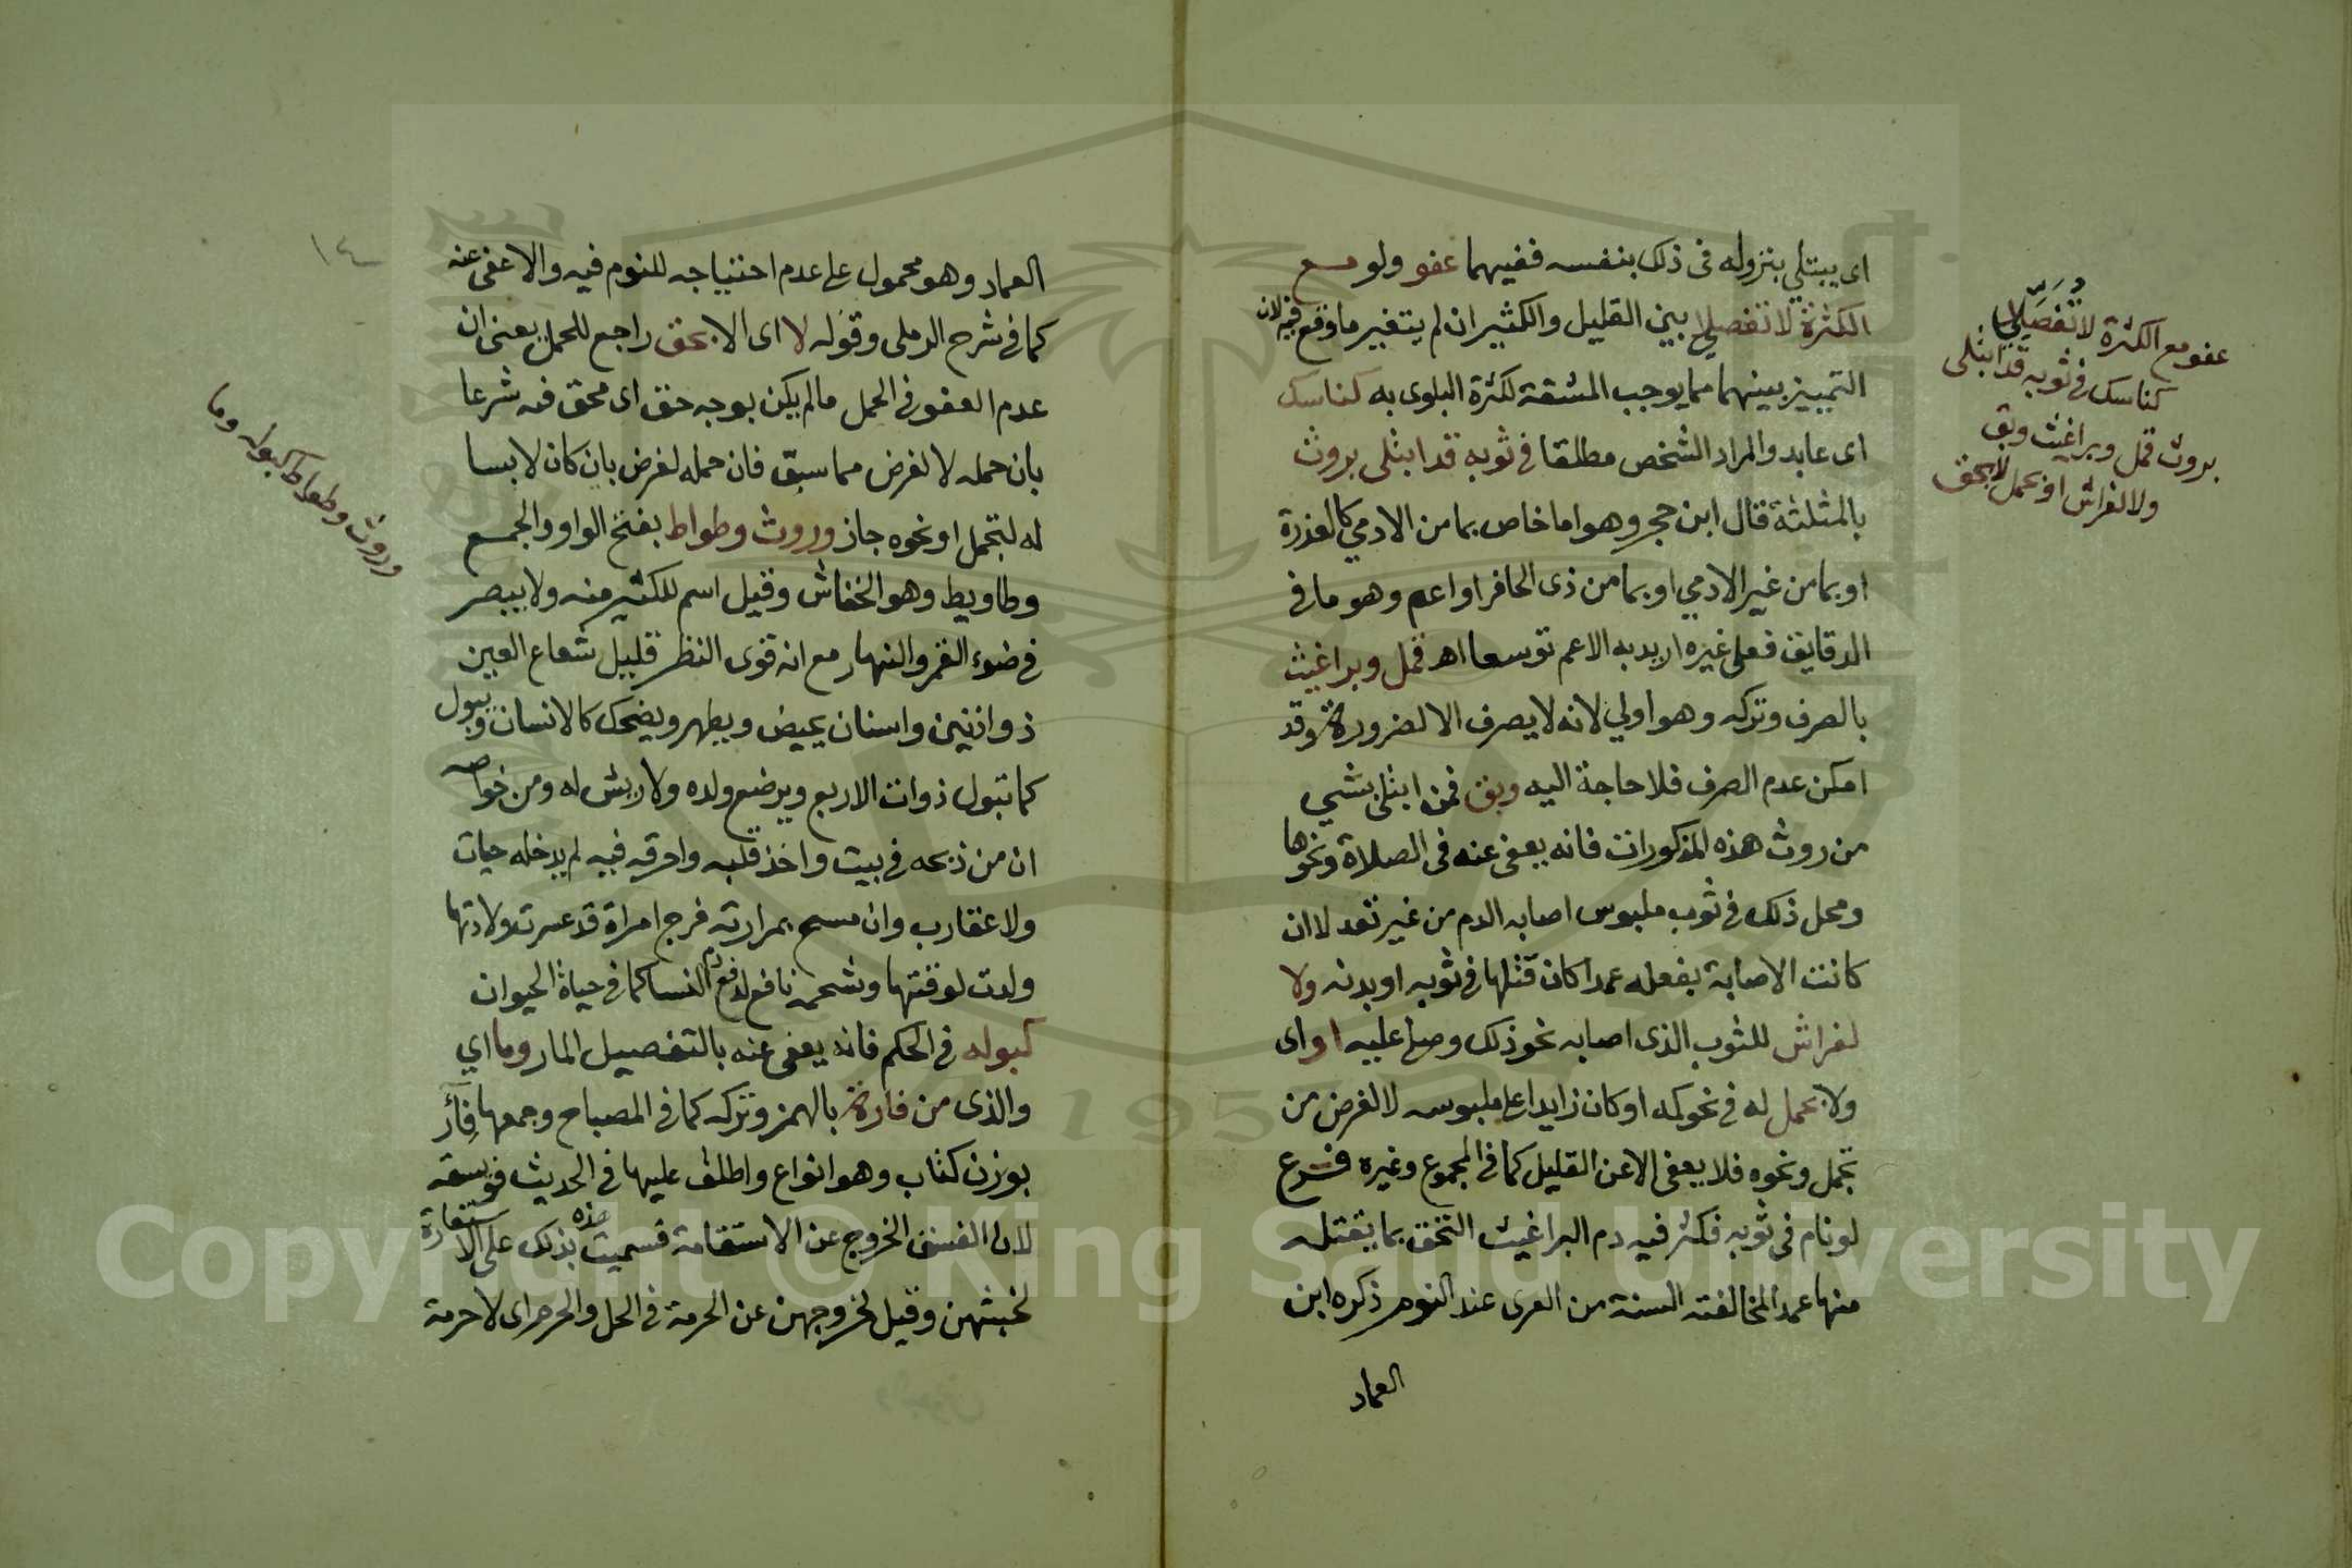 اى يبتلي بنزوله فى ذلك بنفسه ففيهما عفو ولو مع
الكثرة لا تفصيلا بين القليل والكثير ان لم يتغير ما وقع فيه لان
التمييز بينهما مما يوجب المشقة لكثرة البلوى به كناسك
اى عابد والمراد الشخص مطلقا فى ثوبه قد ابتلى بروث
بالمثلثة قال ابن حجر وهو اما خاص بما من الادمي كالعذرة
او بما من غير الادمي او بما من ذى الحافر او اعم وهو ما فى
الدقايق فعلى غيره اريد به الاعم توسعا اهـ قمل وبراغيث
بالصرف وتركه وهو اولي لانه لا يصرف الا لضرورة وقد
امكن عدم الصرف فلا حاجة اليه وبق فمن ابتلى بشي
من روث هذه المذكورات فانه يعفى عنه فى الصلاة ونحوها
ومحل ذلك فى ثوب ملبوس اصابه الدم من غير تعد لا ان
كانت الاصابة بفعله عمدا كان قتلها فى ثوبه او بدنه ولا
لفراش للثوب الذى اصابه نحو ذلك وصلى عليه او اى
ولا بحمل له فى نحو كمه او كان زايدا على ملبوسه لا لغرض من
تجمل ونحوه فلا يعفى الا عن القليل كما فى المجموع وغيره فرع
لو نام فى ثوبه فكثر فيه دم البراغيث التحق بما يقتله
منها عمدا لمخالفته السنة من العرى عند النوم ذكره ابن
العماد
عفو مع الكثرة لا تفصيلا
كناسك فى ثوبه قد ابتلى
بروث قمل وبراغيث وبق
ولا لفراش او بحمل لا بحق
١٤
العماد وهو محمول على عدم احتياجه للنوم فيه والا عفى عنه
كما فى شرح الرملى وقوله لا اى الا بحق راجع للحمل يعنى ان
عدم العفو فى الحمل ما لم يكن بوجه حق اى محق فيه شرعا
بان حمله لا لغرض مما سبق فان حمله لغرض بان كان لابسا
له لتجمل او نحوه جاز وروث وطواط بفتح الواو والجمع
وطاويط وهو الخفاش وقيل اسم للكثير منه ولا يبصر
فى ضوء القمر والنهار مع انه قوى النظر قليل شعاع العين
ذو اذنين واسنان يحيض ويطهر ويضحك كالانسان ويبول
كما تبول ذوات الاربع ويرضع ولده ولا ريش له ومن خواصه
ان من ذبحه فى بيت واخذ قلبه واحرقه فيه لم يدخله حيات
ولا عقارب وان مسح بمرارته فرج امراة قد عسرت ولادتها
ولدت لوقتها وشحمه نافع لدفع دم النسا كما فى حياة الحيوان
كبوله فى الحكم فانه يعفى عنه بالتفصيل المار وما اي
والذى من فارة بالهمز وتركه كما فى المصباح وجمعها فئآر
بوزن كتاب وهو انواع واطلق عليها فى الحديث فويسقة
لان الفسق الخروج عن الاستقامة فسميت هذه بذلك على الاستعارة
لخبثهن وقيل لخروجهن عن الحرمة فى الحل والحرم اى لا حرمة
وروث وطواط كبوله وما
Copyright © King Saud University
1957